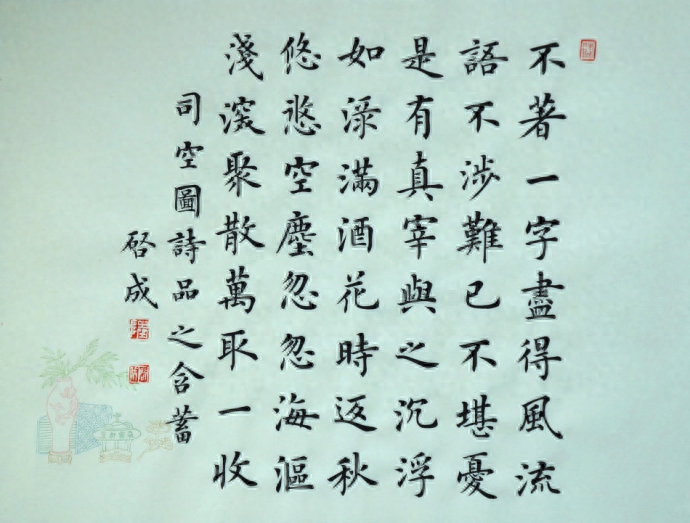 不著一字盡得風流
語不涉難已不堪憂
是有真宰與之沉浮
如淥滿酒花時返秋
悠悠空塵忽忽海漚
淺深聚散萬取一收
司空圖詩品之含蓄
啓成